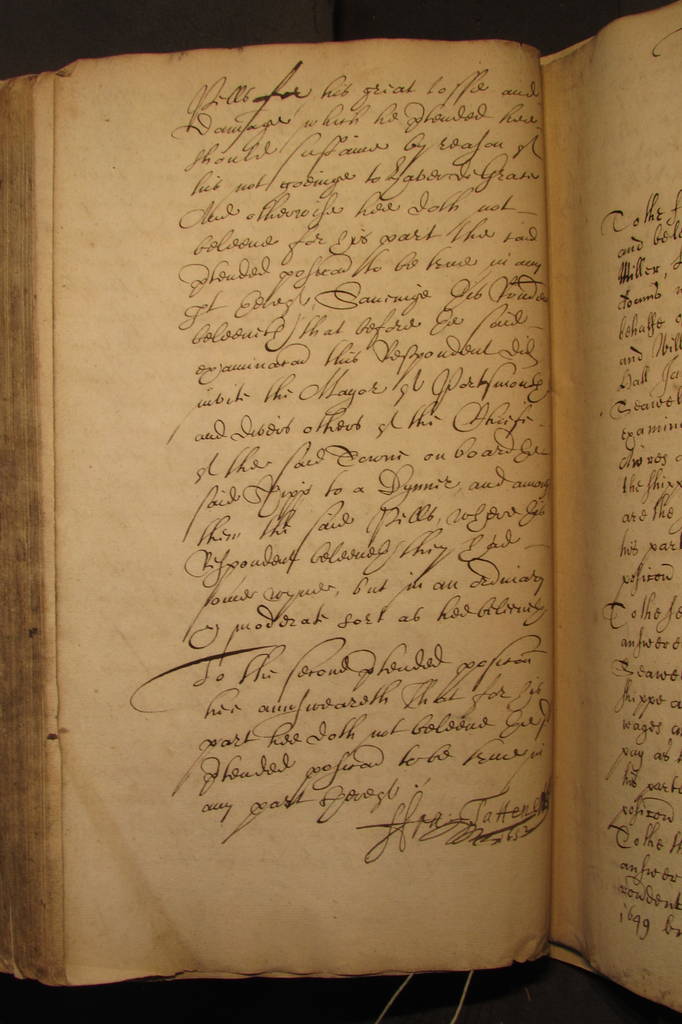 Pells for his great losse and
Damage, which he ptended hee
should sustaine by reason of
his not goeinge to Haver de Grace
And otherwise hee doth not
beleeve for his part the said
ptended posicon to be true in any
pt thereof, Saveinge his Rondent
beleeveth that before he said
examinacon this Respondent did
invite the Mayor of Portsmouth
and divers others of the Chiefe
of the said Towne on board the
said shipp to a Dynner, and among
them the said Pells, where this
Respondent beleeveth they had
some wyne, but in an ordinary
& moderate sort as hee beleeveth
To the second ptended posicon
hee answeareth That for his
part hee doth not beleeve the
ptended posicon to be true in
any part thereof
Tattersall
To the
and bel
Miller,
Downs
behalfe
and Will
Hall
Seawel
examin
the shipp
are the
his part
posicon
To the se
answere
Seawe
shippe a
wages a
pay as
his parte
posicon
To the th
answer
rondent
1649